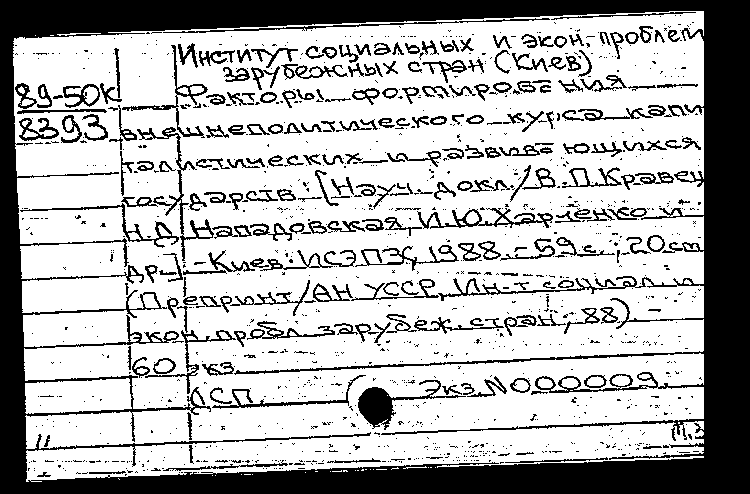 Институт социальных и экон. проблем
зарубежных стран (Киев)
89-50к Факторы формирования
8393 внешнеполитического курса капи
талистических и развивающихся
государств: [Науч. докл./В.П.Кравец
Н.Д. Нападовская, И.Ю.Харченко и
др.] - Киев: ИСЭПЗС, 1988. - 59 с.; 20 см
(Препринт/АН УССР, Ин-т социал. и
экон. пробл. зарубеж. стран; 88). -
60 экз.
СП. Экз. N000009.
11